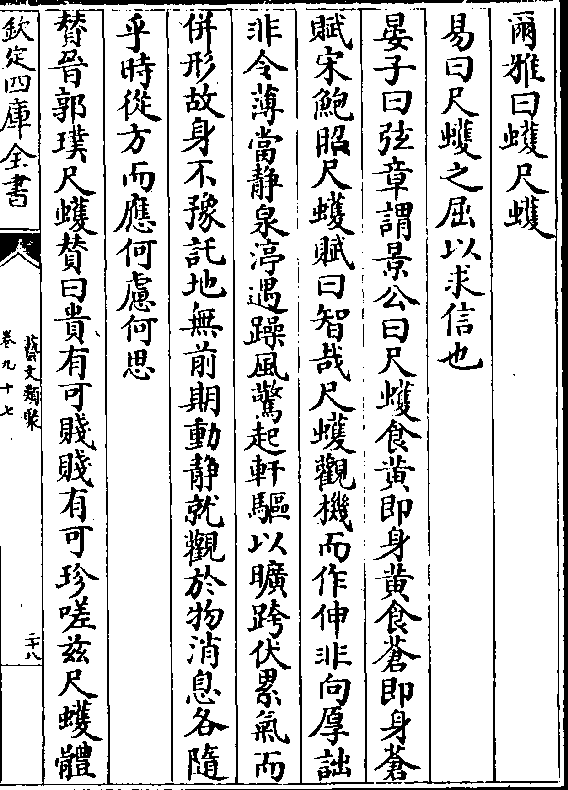 爾雅曰蠖尺蠖
易曰尺蠖之屈以求信也
晏子曰弦章謂景公曰尺蠖食黄即身黄食蒼即身蒼
賦宋鮑昭尺蠖賦曰智哉尺蠖觀機而作伸非向厚詘
非令薄當静泉渟遇躁風驚起軒驅以曠跨伏累氣而
併形故身不豫託地無前期動静就觀於物消息各隨
乎時從方而應何慮何思
賛晉郭璞尺蠖賛曰貴有可賤賤有可珍嗟兹尺蠖體
欽定四庫全書
藝文類聚
卷九十七
二十八